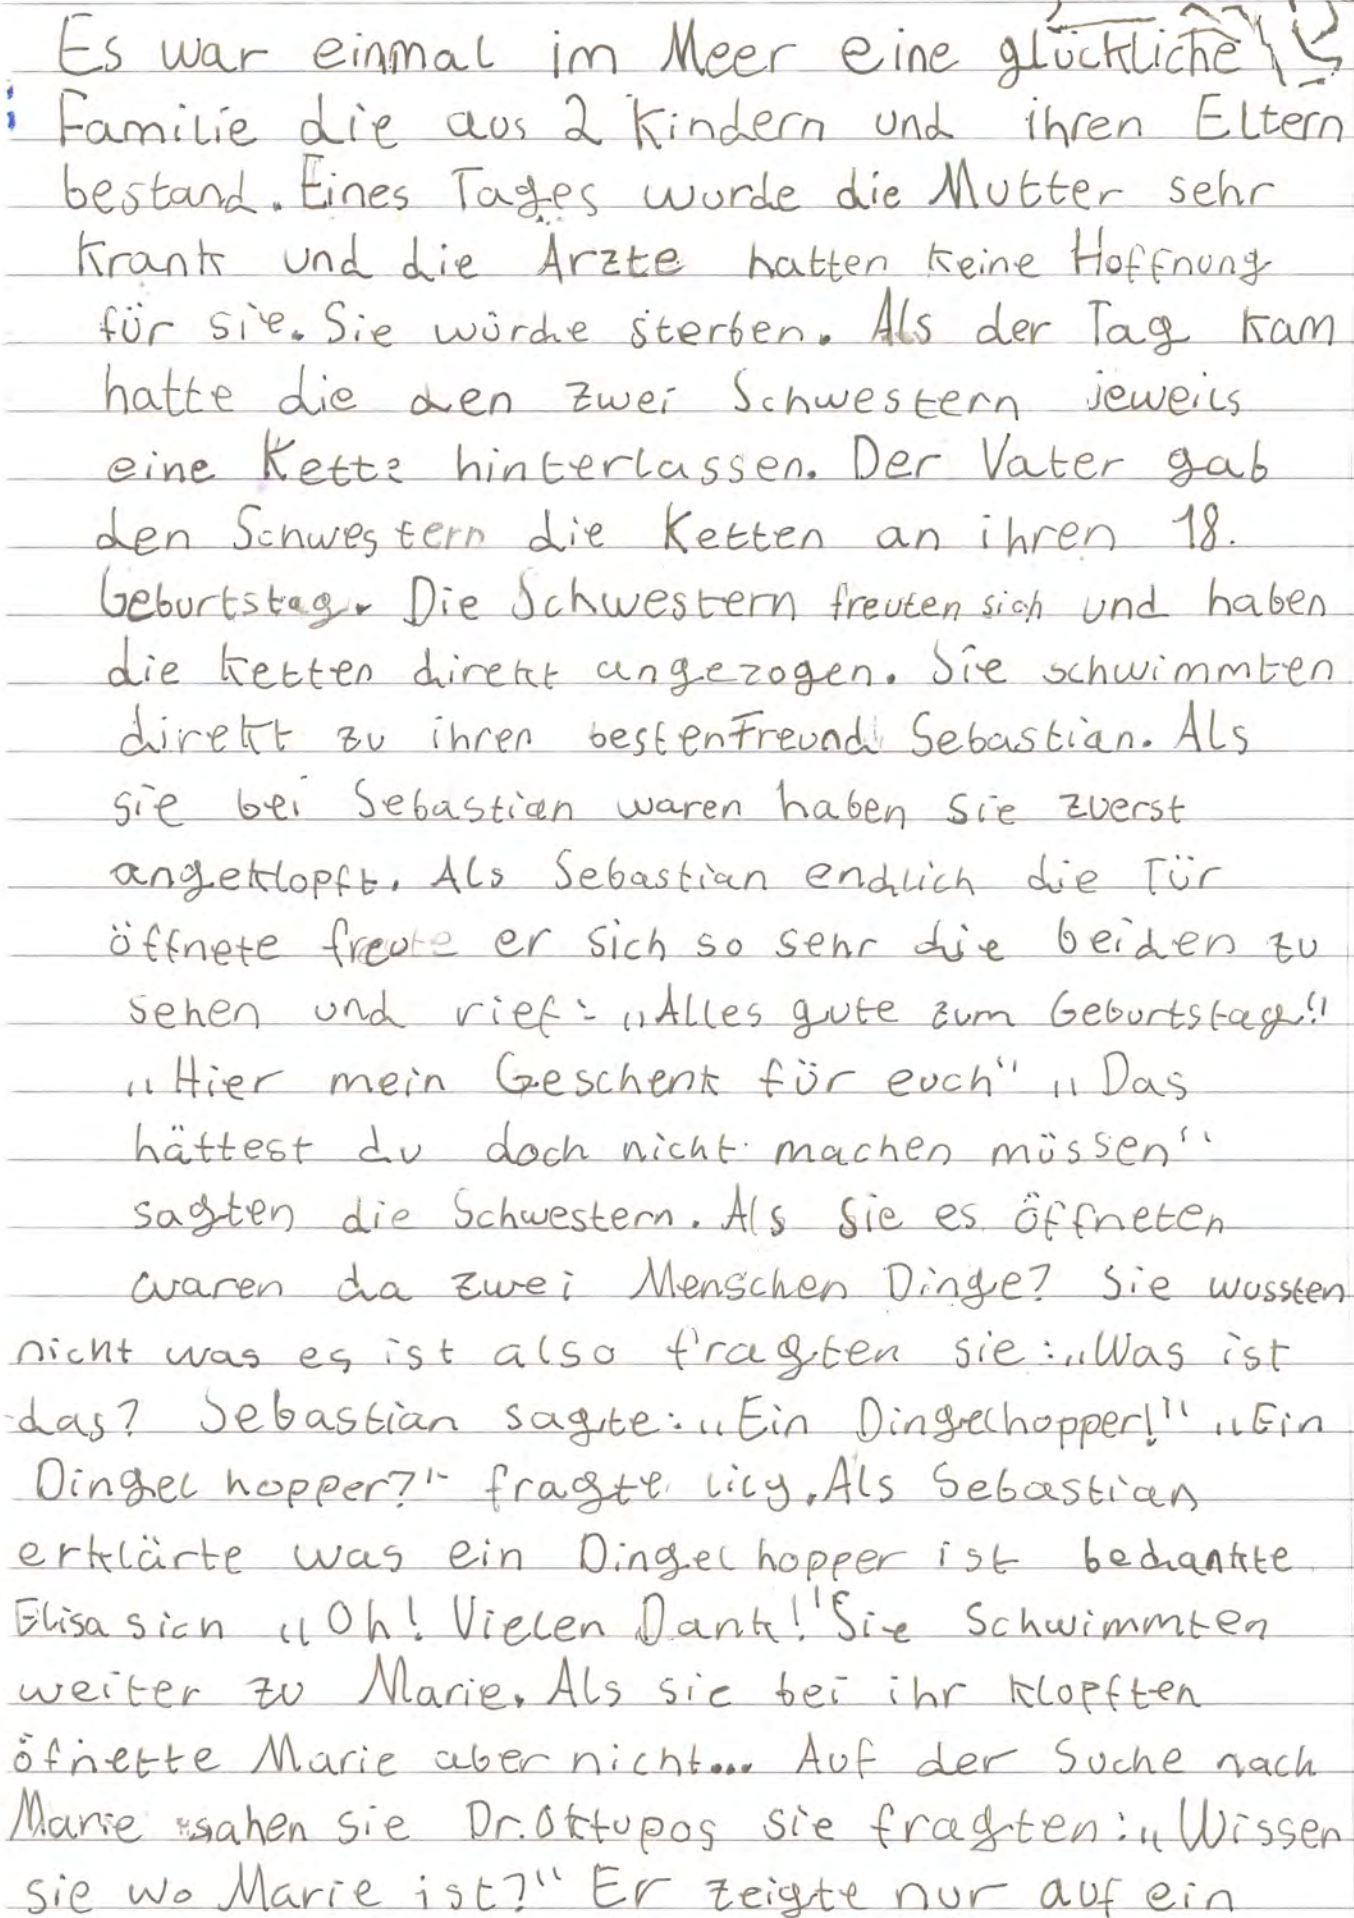 Es war einmal im Meer eine glückliche
Familie die aus 2 Kindern und ihren Eltern
bestand. Eines Tages wurde die Mutter sehr
krank und die Ärzte hatten keine Hoffnung
für sie. Sie würde sterben. Als der Tag kam
hatte die den zwei Schwestern jeweils
eine Kette hinterlassen. Der Vater gab
den Schwestern die Ketten an ihren 18.
Geburtstag. Die Schwestern freuten sich und haben
die ketten direkt angezogen. Sie schwimmten
direkt zu ihren besten Freund Sebastian. Als
sie bei Sebastian waren haben sie zuerst
angeklopft. Als Sebastian endlich die Tür
öffnete freute er sich so sehr die beiden zu
sehen und rief: „Alles gute zum Geburtstag!"
„Hier mein Geschenk für euch" „Das
hättest du doch nicht machen müssen"
sagten die Schwestern. Als sie es öffneten
waren da zwei Menschen Dinge? Sie wussten
nicht was es ist also fragten sie: „Was ist
das? Sebastian sagte: „Ein Dingelhopper!" „Ein
Dingelhopper?" fragte lily. Als Sebastian
erklärte was ein Dingelhopper ist bedankte
Elisa sich „Oh! Vielen Dank!" Sie schwimmten
weiter zu Marie. Als sie bei ihr klopften
öfnette Marie aber nicht... Auf der Suche nach
Marie sahen sie Dr. Oktupos sie fragten: „Wissen
sie wo Marie ist?" Er zeigte nur auf ein